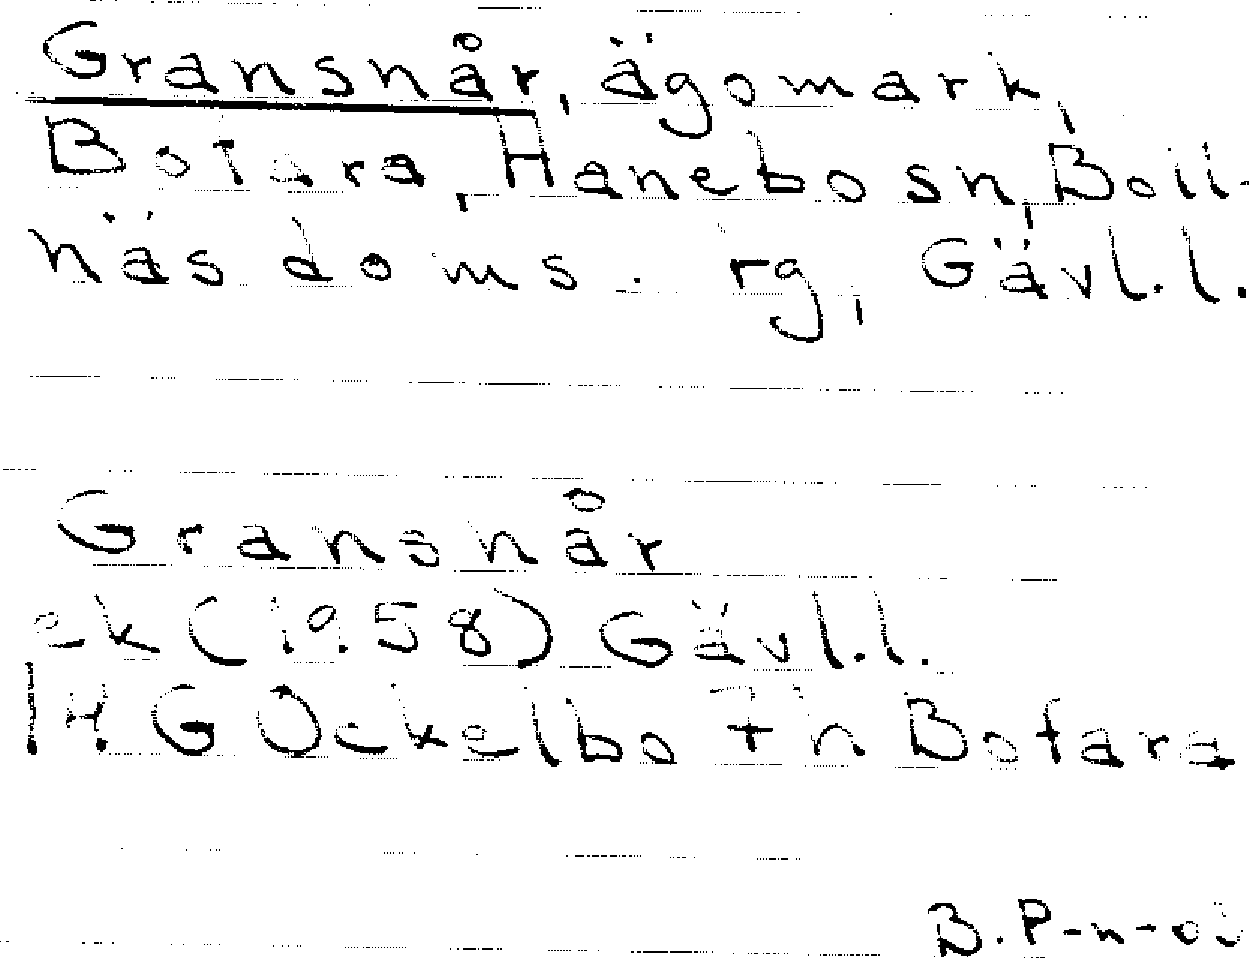 Gransnår, ägomark,
Botara, Hanebo sn, Boll-
näs doms. rg, Gävl.l.
Gransnår
ek (1958) Gävl.l.
14 G Ockelbo 7 n Botara
B. P-n-